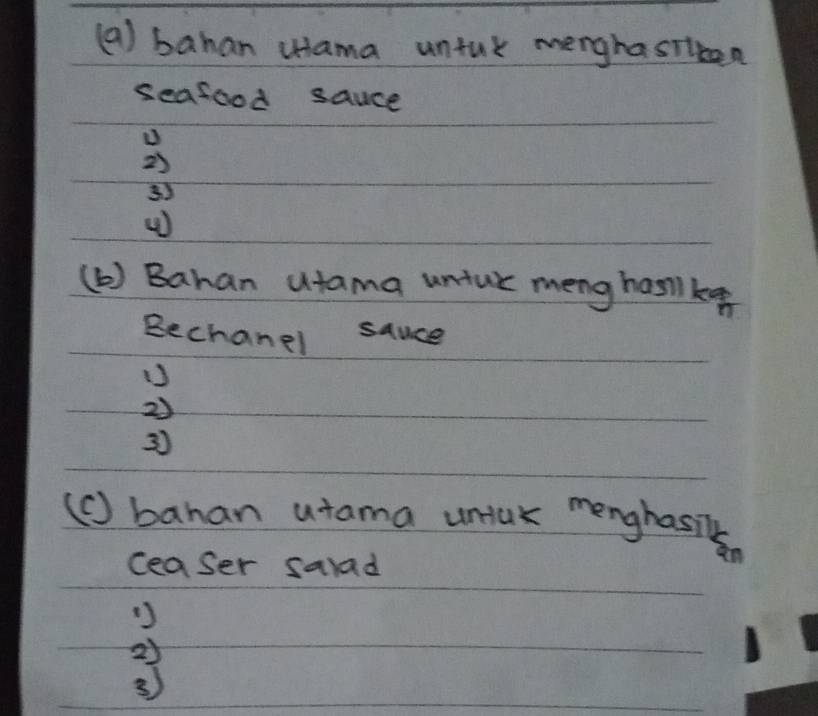 (a) bahan utama untuk menghasilkan
seafood sauce
1)
2)
3)
4)
(b) Bahan utama untuk menghasilkan
Bechanel sauce
1)
2)
3)
(c) bahan utama untuk menghasilkan
ceaser salad
1)
2)
3)